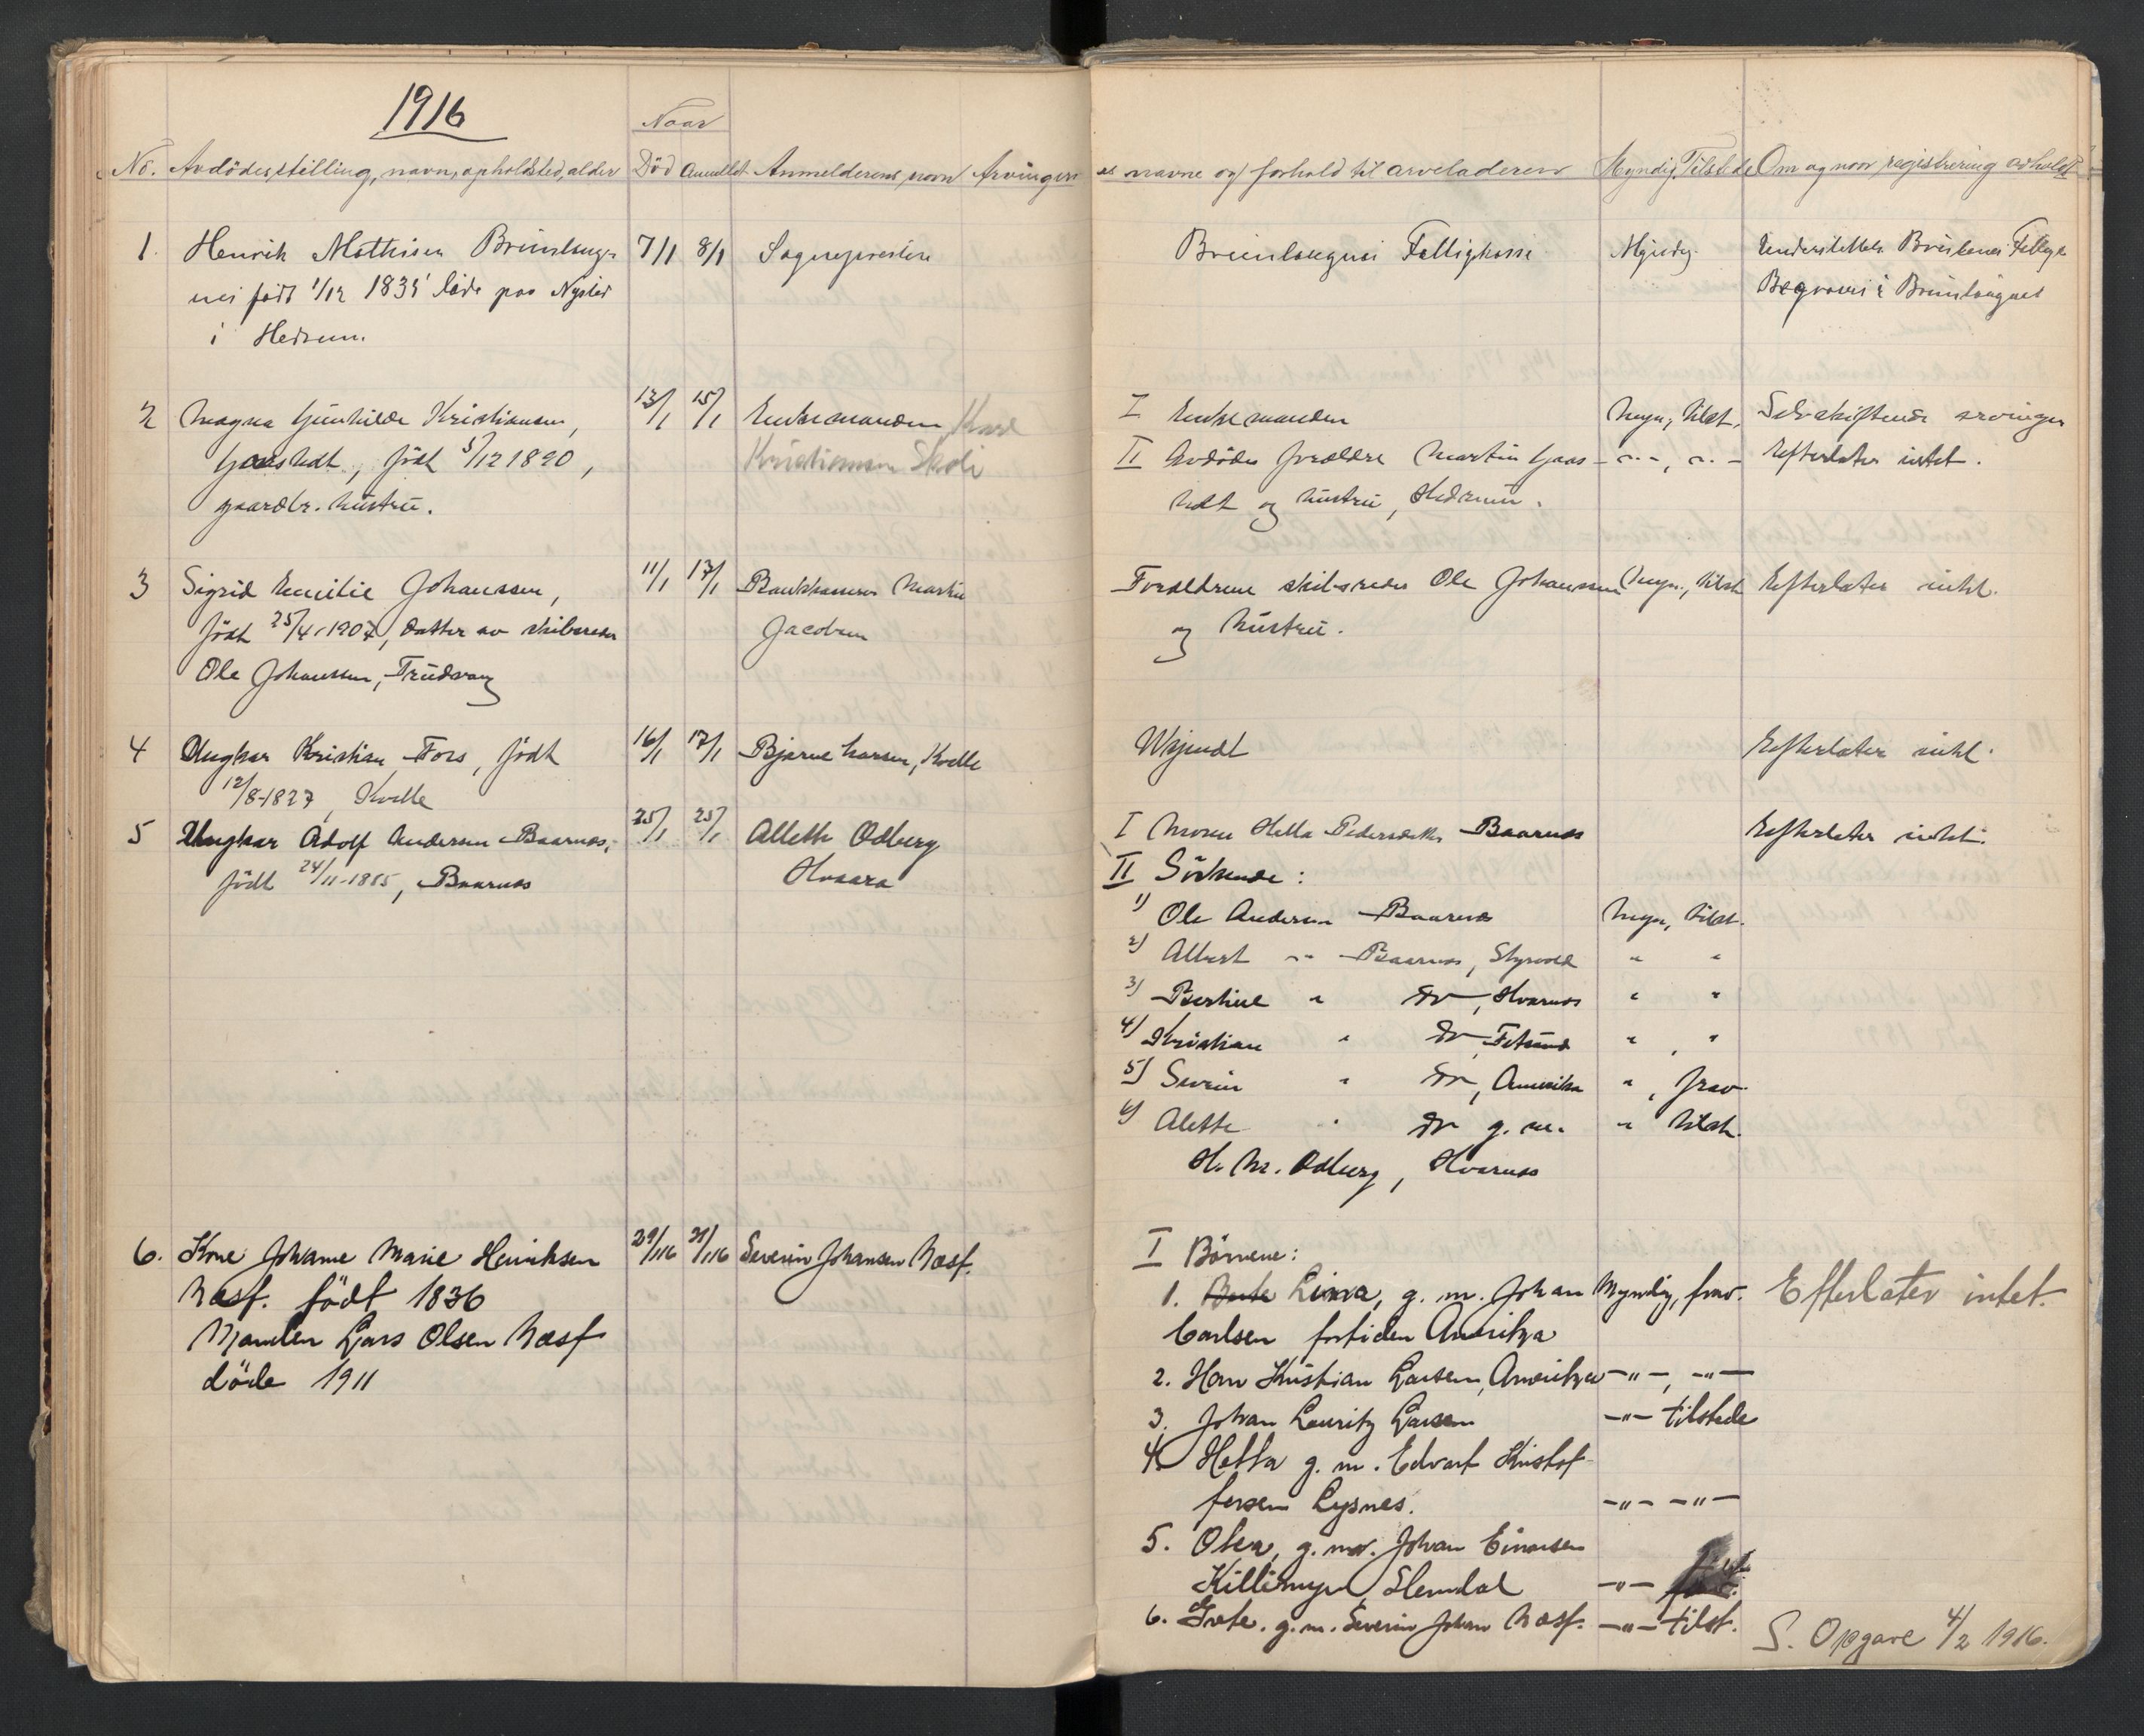 1916
Naar
No. Avdødes stilling, navn, opholdsted, alder Död Anmeldt Anmelderens navn Arvinger
es navne og forhold til arveladeren Myndig, Tilstede Om og naar registrering avholdt
1. Henrik Mathisen Brunlang- 7/1 8/1 Sognepresten
nes født 1/12 1835 døde paa Nysted
i Hedrum.
Brunlangnes Fattigkasse Myndig. Understøttet Fattigk
Begraves i Brunlangnes
2 Magna Gunhilde Kristiansen, 13/1 15/1 Enkemanden Karl
Gaastedt, født 5/12 1890, Kristiansen Skoli
gaardbr. hustru.
I Enkemanden Myn, tilst. Selvskiftende arvinger
II Avdødes forældre Martin Gaas- -"-, -"- Efterlater intet.
tedt og hustru, Hedrum.
3 Sigrid Emilie Johanssen, 11/1 17/1 Bankkasserer Martin
født 25/4-1907, datter av skibsreder Jacobsen
Ole Johanssen, Trudvang
Forældrene skibsreder Ole Johanssen Myn., tilst Efterlater intet.
og hustru.
4 Ungkar Kristian Fors, født 16/1 17/1 Bjarne Larsen, Kvelle
12/8-1827, Kvelle
Ukjendt Efterlater intet.
5 Ungkar Adolf Andersen Baarnes, 25/1 25/1 Allette Odberg
født 24/11-1885, Baarnes Hvaara
I Moren Hella Pedersdatter Baarnes Efterlater intet.
II Søskende:
1) Ole Andersen Baarnes Myn, tilst.
2) Albert -"- Baarnes, Styrvold " "
3) Bertine " do, Hvarnes " "
4) Kristian " do, " , "
5) Severin " do, Amerika ", frav.
6) Alette " do g. m. " tilst.
H. M. Odberg, Hvarnes
6. Kone Johanne Marie Henriksen 29/1 16 31/1 16 Severin Johansen Næsf.
Næsf. født 1836
Manden Lars Olsen Næsf
døde 1911
I Børnene:
1. Lina, g. m. Johan Myndig, frav. Efterlater intet.
Carlsen fortiden Amerika
2. Hans Kristian Larsen, Amerika -"-, -"-
3. Johan Lauritz Larsen -"- tilstede
4. Hella g. m. Edvart Kristof-
fersen Lysnes. -"- -"-
5. Olea, g. m. Johan Einarsen
Killimyr, Slemdal -"- tilst.
6. Grete. g. m. Severin Johan Næsf. -"- tilst.
S. Opgave 4/2 1916.